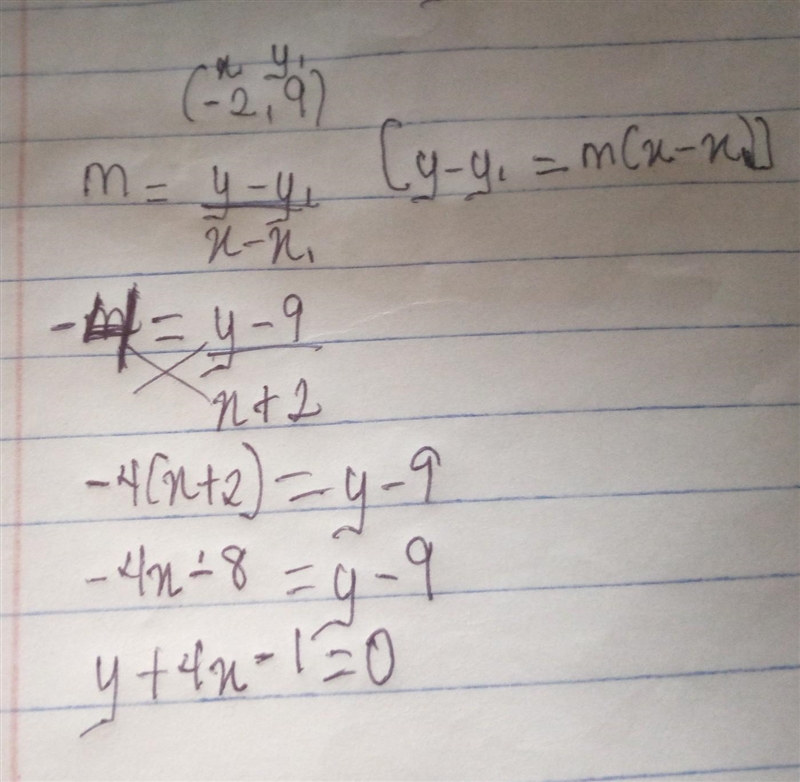 x₁ y₁
(-2, 9)
m = (y - y₁)/(x - x₁) [y - y₁ = m(x - x₁)]
- = (y - 9)/(x + 2)
-4(x+2) = y - 9
-4x - 8 = y - 9
y + 4x - 1 = 0